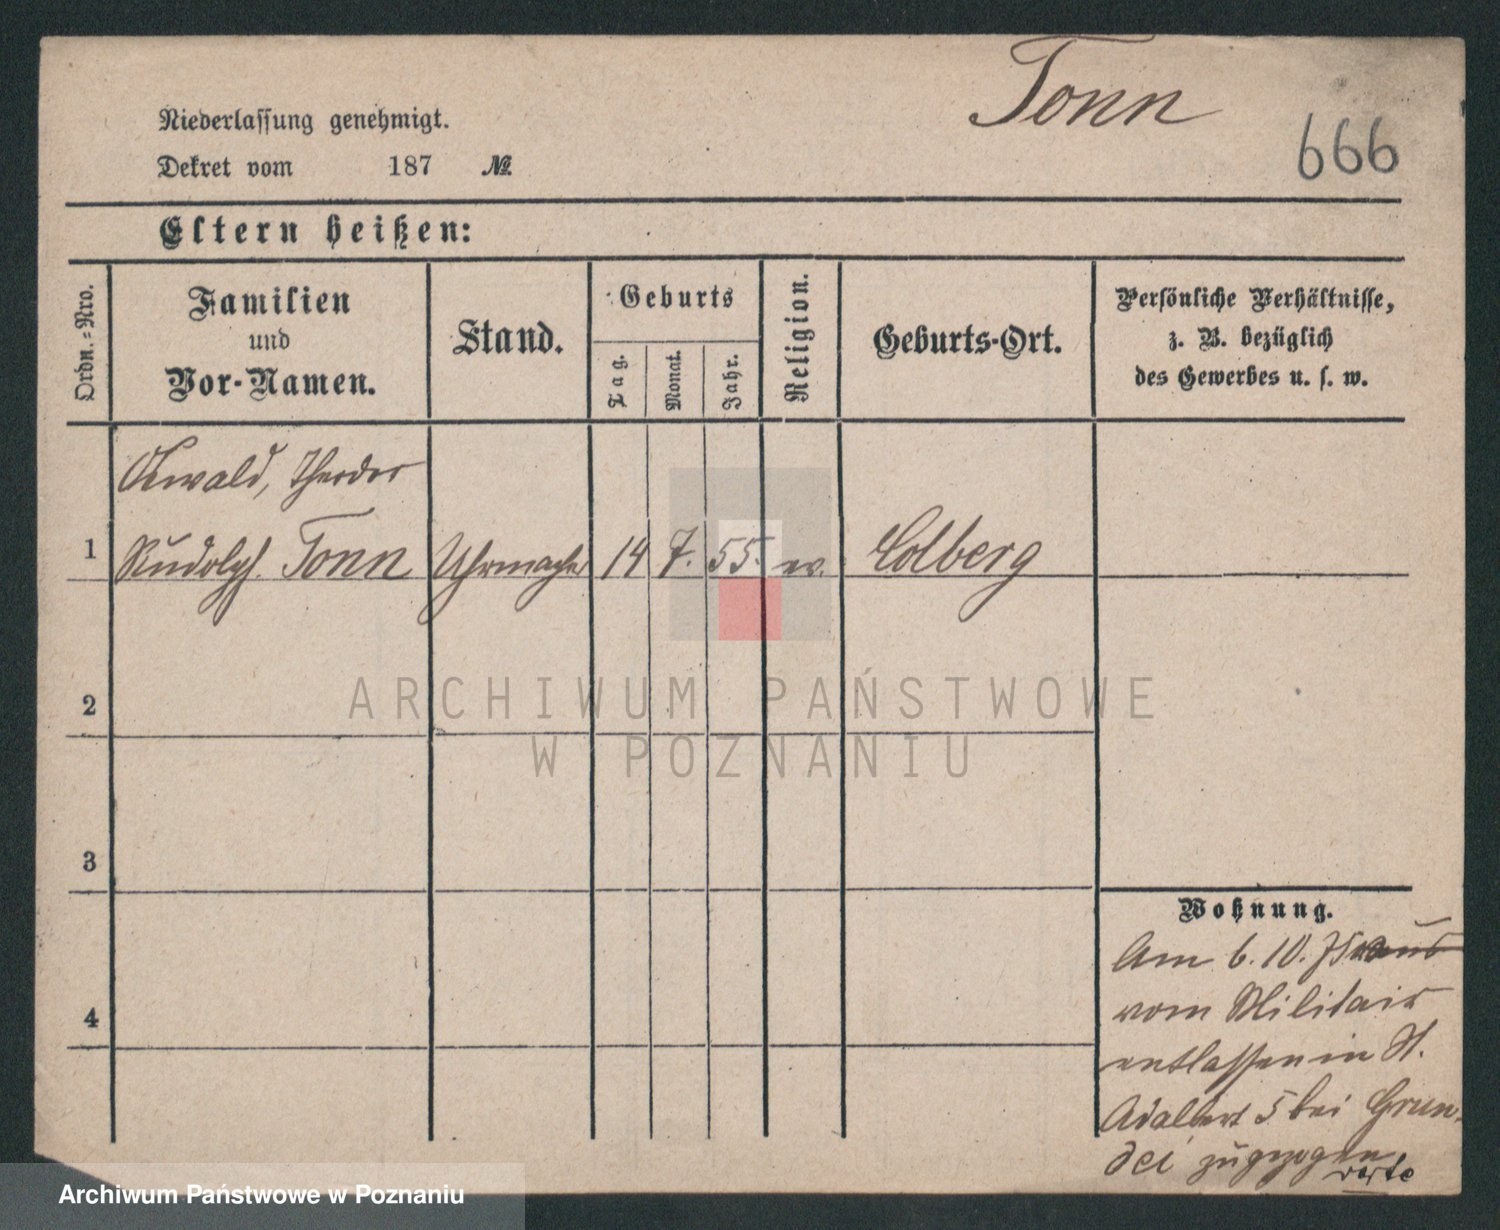 Tonn
666
Niederlassung genehmigt.
Dekret vom 187 №
Eltern heißen:
Ordn.=Nro.
Familien
und
Vor-Namen.
Stand.
Geburts
Tag.
Monat.
Jahr.
Religion.
Geburts-Ort.
Persönliche Verhältnisse,
z. B. bezüglich
des Gewerbes u. s. w.
Oswald, Theodor
1 Rudolph Tonn Uhrmacher 14 7. 55. ev. Colberg
2
3
4
Wohnung.
Am 6. 10.
vom Militair
entlassen in St.
Adalbert 5 bei Grun-
dei zugezogen
verte
ARCHIWUM PAŃSTWOWE
W POZNANIU
Archiwum Państwowe w Poznaniu